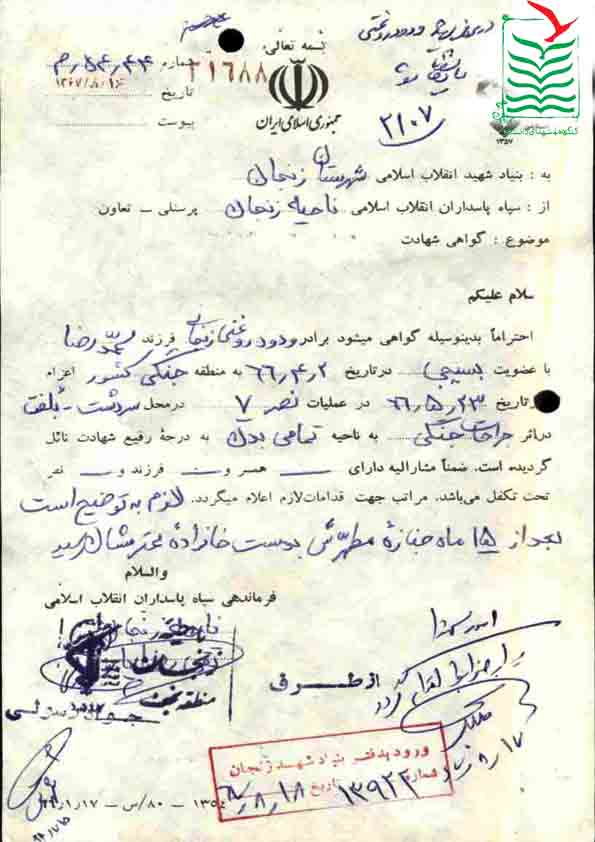 بسمه تعالی
شماره ۵۴٫۴۴٫م
۳۱۶۸۸
تاریخ ۱۳۶۷
پیوست
جمهوری اسلامی ایران
۲۱۰۷
۱۳۵۷
به : بنیاد شهید انقلاب اسلامی شهرستان زنجان
از : سپاه پاسداران انقلاب اسلامی ناحیه زنجان پرسنلی – تعاون
موضوع : گواهی شهادت
سلام علیکم
احتراماً بدینوسیله گواهی میشود برادر ودود روغنی زنجانی فرزند محمدرضا
با عضویت بسیجی درتاریخ ۶۶٫۴٫۲ به منطقه جنگی کشور اعزام
درتاریخ ۶۶٫۵٫۲۳ در عملیات نصر ۷ درمحل سردشت - بلفت
دراثر جراحات جنگی به ناحیه تمامی بدن به درجهٔ رفیع شهادت نائل
گردیده است. ضمناً مشارالیه دارای ــ همسر و ــ فرزند و ــ نفر
تحت تکفل می‌باشد. مراتب جهت اقدامات لازم اعلام میگردد. لازم به توضیح است
بعد از ۱۵ ماه جنازهٔ مطهرش بدست خانوادهٔ محترمشان رسید
والسلام
فرماندهی سپاه پاسداران انقلاب اسلامی
از طرف
ورود بدفتر بنیاد شهید زنجان
شماره ۱۳۹۲۲ تاریخ ۶۷٫۸٫۱۸